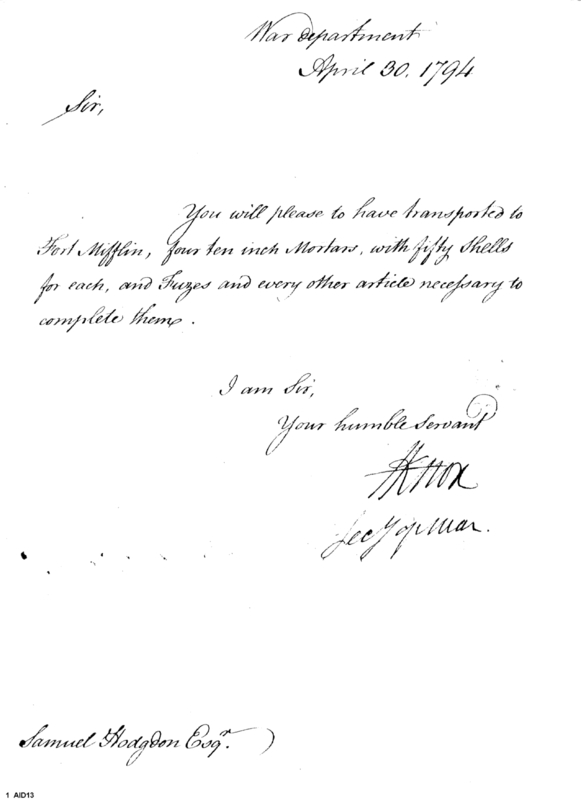 War department
April 30. 1794
Sir,
You will please to have transported to
Fort Mifflin, four ten inch Mortars, with fifty Shells
for each, and Fuzes and every other article necessary to
complete them.
I am Sir,
Your humble servant
HKnox
Secy of War.
Samuel Hodgdon Esqr.
1 AID13